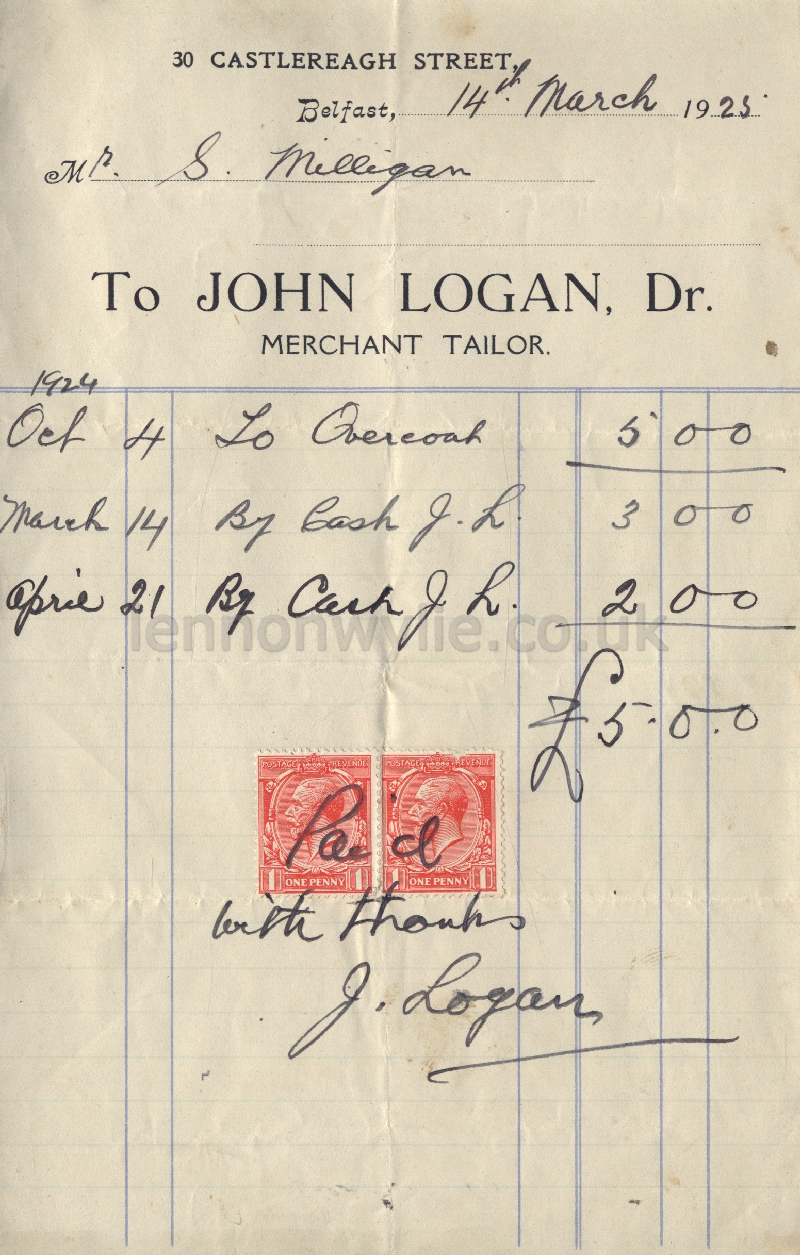 30 CASTLEREAGH STREET,
Belfast, 14th. March 1925.
Mr. S. Milligan
To JOHN LOGAN, Dr.
MERCHANT TAILOR.
1924
Oct 4 To Overcoat 5 0 0
March 14 By Cash J. L. 3 0 0
April 21 By Cash J L. 2 0 0
lennonwylie.co.uk
£5.0.0
POSTAGE REVENUE POSTAGE REVENUE
Paid
1 ONE PENNY 1 1 ONE PENNY 1
with thanks
J. Logan